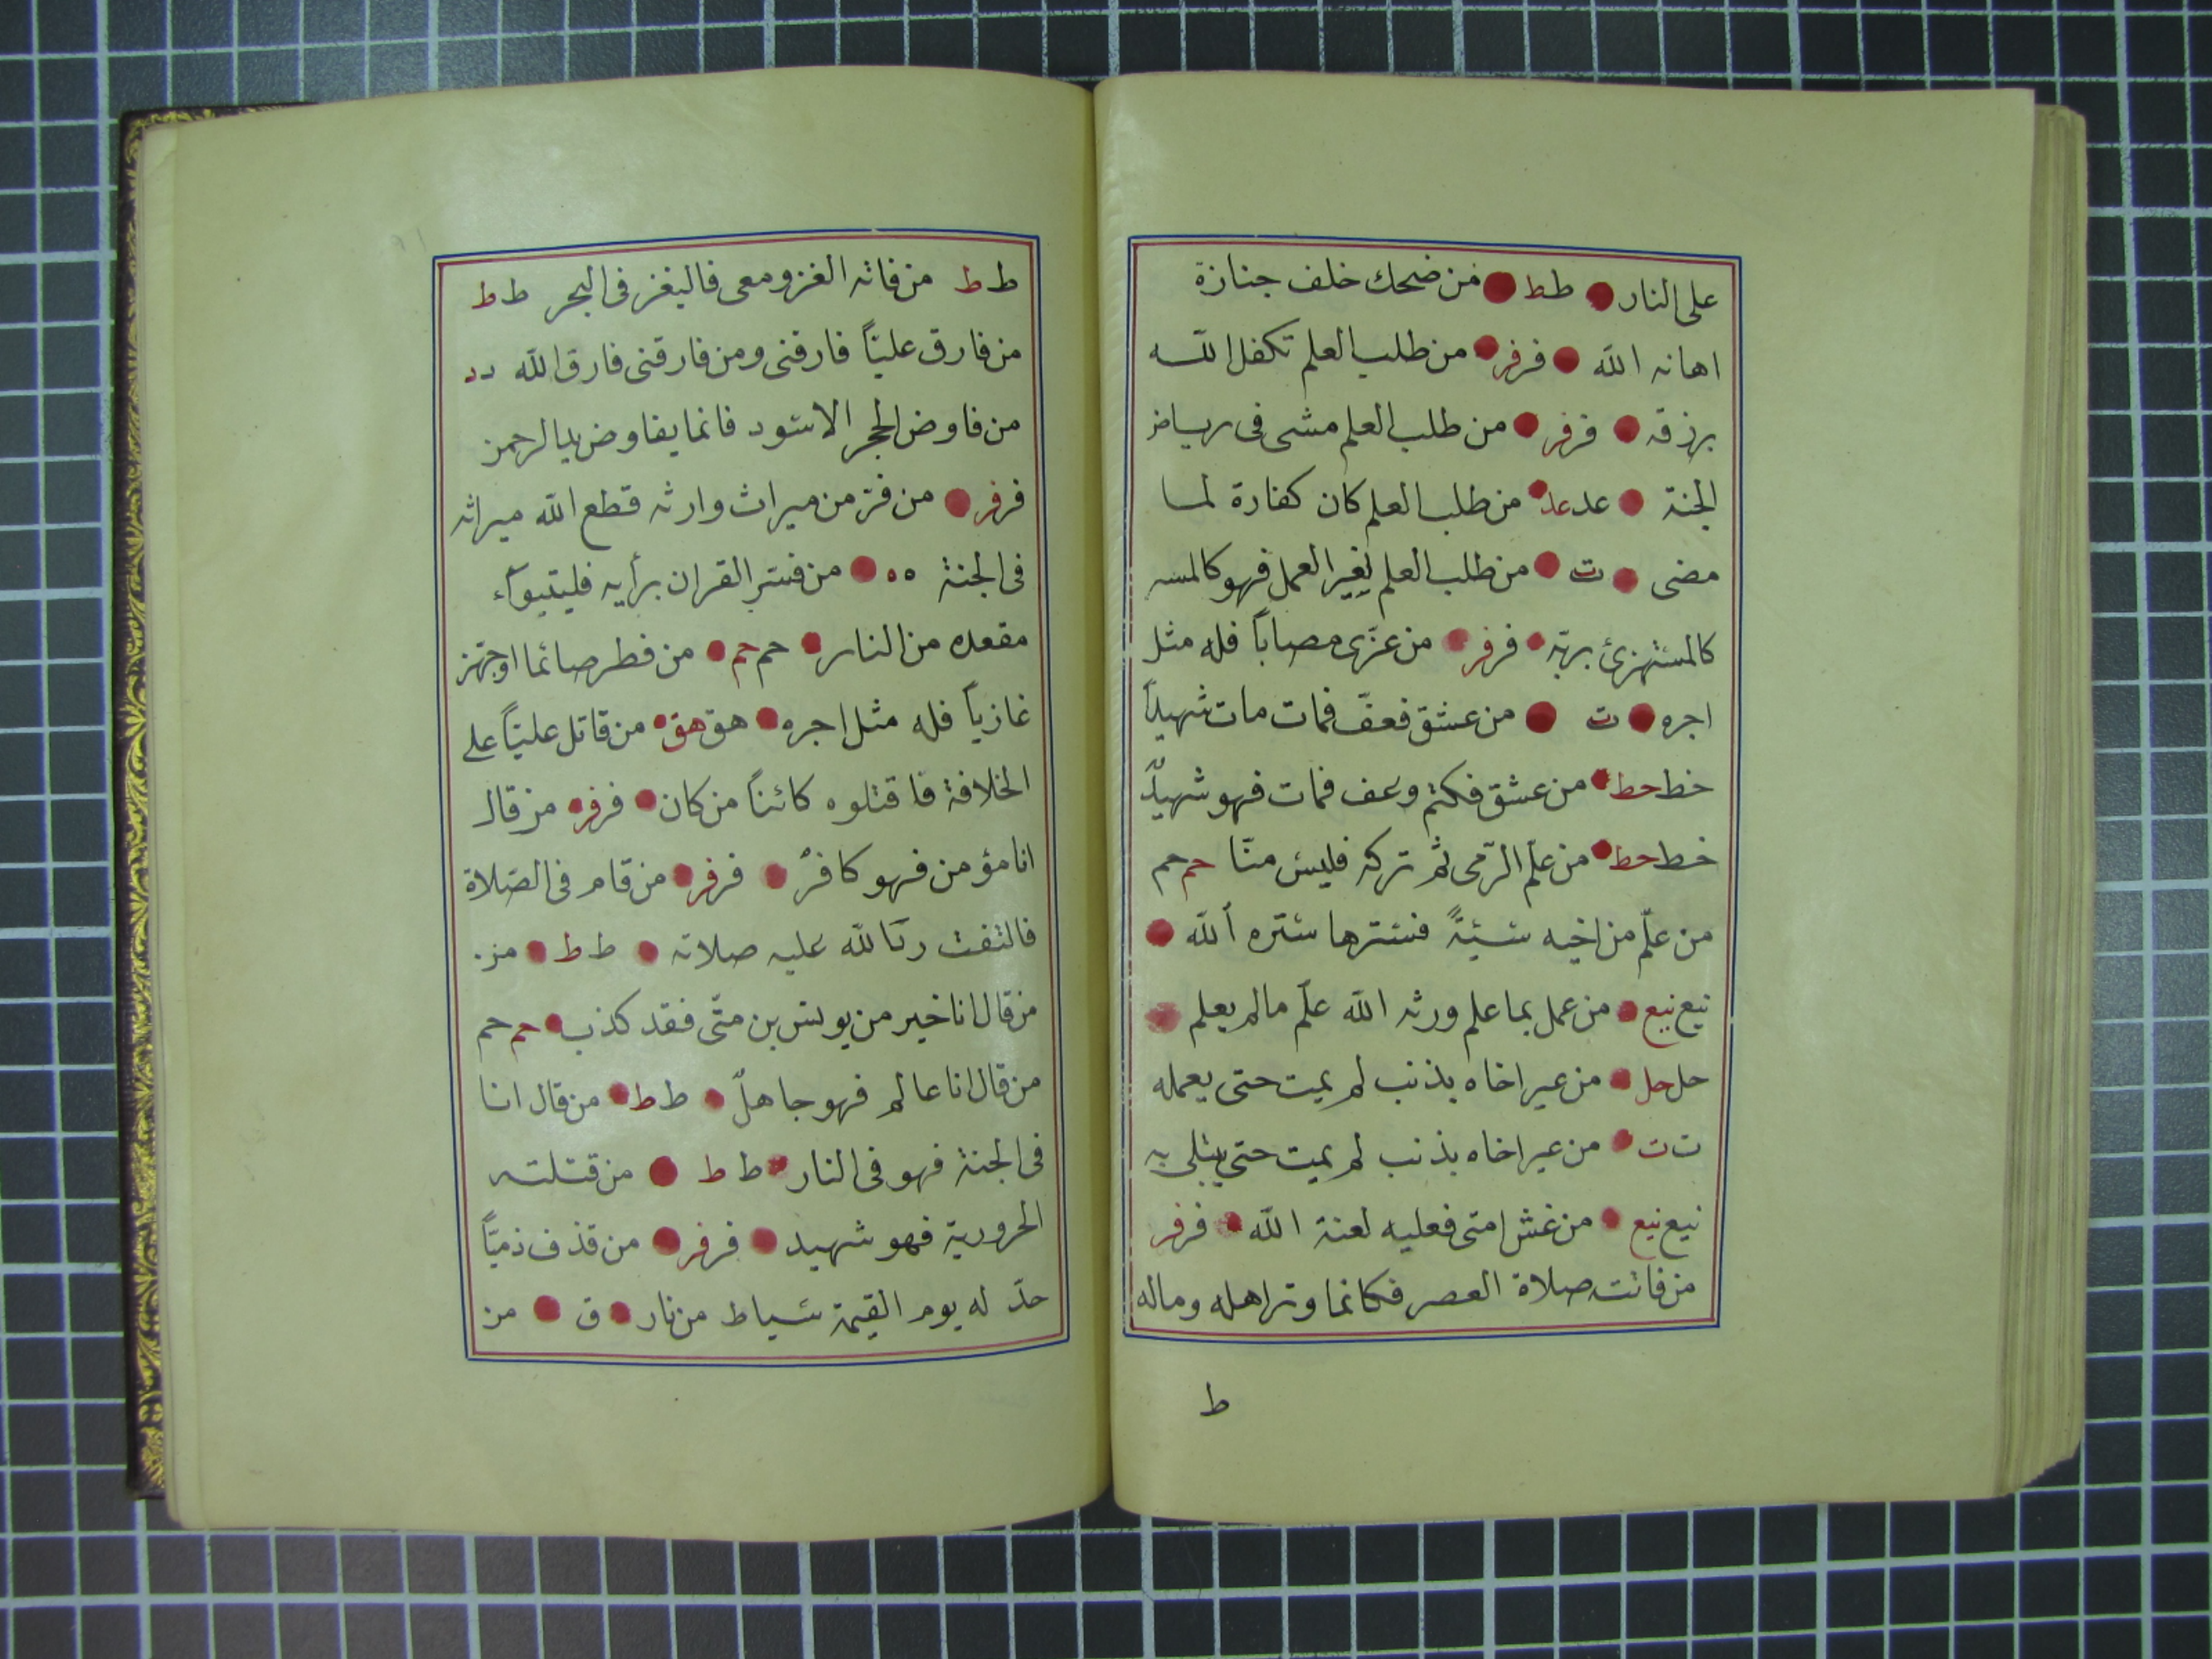 على النار ط ط من ضحك خلف جنازة
اهانه الله فر فر من طلب العلم تكفل الله
برزقه فر فر من طلب العلم مشى فى رياض
الجنة عد عد من طلب العلم كان كفارة لما
مضى ت من طلب العلم لغير العمل فهو
كالمستهزئ بربّه فر فر من عزّى مصاباً فله مثل
اجره ت من عشق فعفّ فمات مات شهيداً
خط خط من عشق فكتم وعف فمات فهو شهيدٌ
خط خط من علّم الرّمى ثم تركه فليس منّا حم حم
من علّم من اخيه سيّئةً فسترها ستره الله
نيع نيع من عمل بما علم ورثه الله علّم مالم يعلم
حل حل من عير اخاه بذنب لم يمت حتى يعمله
ت ت من عير اخاه بذنب لم يمت حتى يبتلى به
نيع نيع من غش امتى فعليه لعنة الله فر فر
من فاتت صلاة العصر فكانما وتر اهله وماله
ط
ط ط من فاته الغزو معى فاليغز فى البحر ط ط
من فارق عليّاً فارقنى ومن فارقنى فارق الله د د
من فاوض الحجر الاسود فانما يفاوض يد الرحمن
فر فر من فرّ من ميراث وارثه قطع الله ميراثه
فى الجنة ه ه من فسر القران برأيه فليتبوّأ
مقعده من النار حم حم من فطر صائما او جهّز
غازياً فله مثل اجره هق هق من قاتل عليّاً على
الخلافة فاقتلوه كائناً من كان فر فر من قال
انا مؤمن فهو كافرٌ فر فر من قام فى الصّلاة
فالتفت ردّ الله عليه صلاته ط ط من
من قال انا خير من يونس بن متّى فقد كذب حم حم
من قال انا عالم فهو جاهلٌ ط ط من قال انا
فى الجنة فهو فى النار ط ط من قتلته
الحرورية فهو شهيد فر فر من قذف ذميّاً
حدّ له يوم القيمة سياط من نار ق من